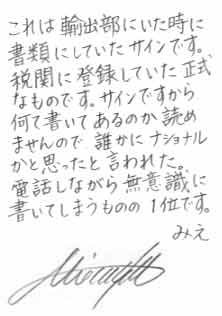 これは輸出部にいた時に
書類にしていたサインです。
税関に登録していた正式
なものです。サインですから
何て書いてあるのか読め
ませんので誰かにナショナル
かと思ったと言われた。
電話しながら無意識に
書いてしまうものの1位です。
みえ